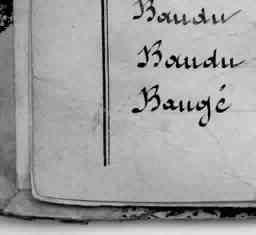 Baudu
Baudu
Baugé